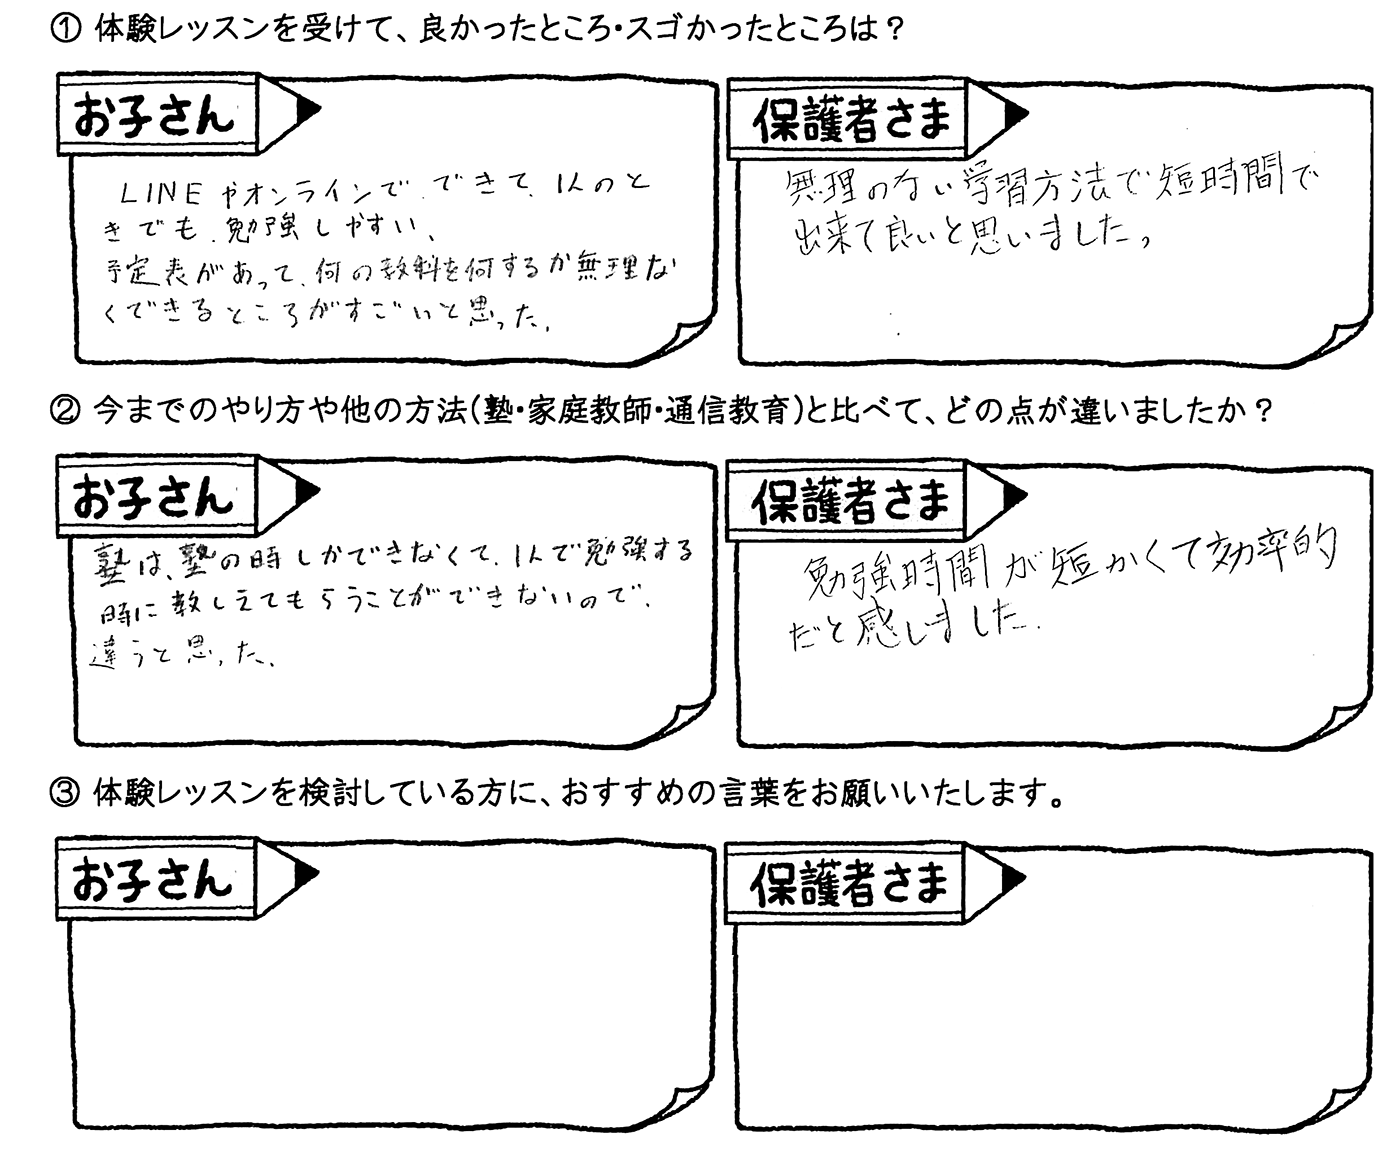 ① 体験レッスンを受けて、良かったところ・スゴかったところは？
お子さん
LINEやオンラインで、できて、1人のと
きでも、勉強しやすい、
予定表があって、何の教科を何するか無理な
くできるところがすごいと思った、
保護者さま
無理のない学習方法で短時間で
出来て良いと思いました。
② 今までのやり方や他の方法(塾・家庭教師・通信教育)と比べて、どの点が違いましたか？
お子さん
塾は、塾の時しかできなくて、1人で勉強する
時に教しえてもらうことができないので、
違うと思った、
保護者さま
勉強時間が短かくて効率的
だと感じました。
③ 体験レッスンを検討している方に、おすすめの言葉をお願いいたします。
お子さん
保護者さま